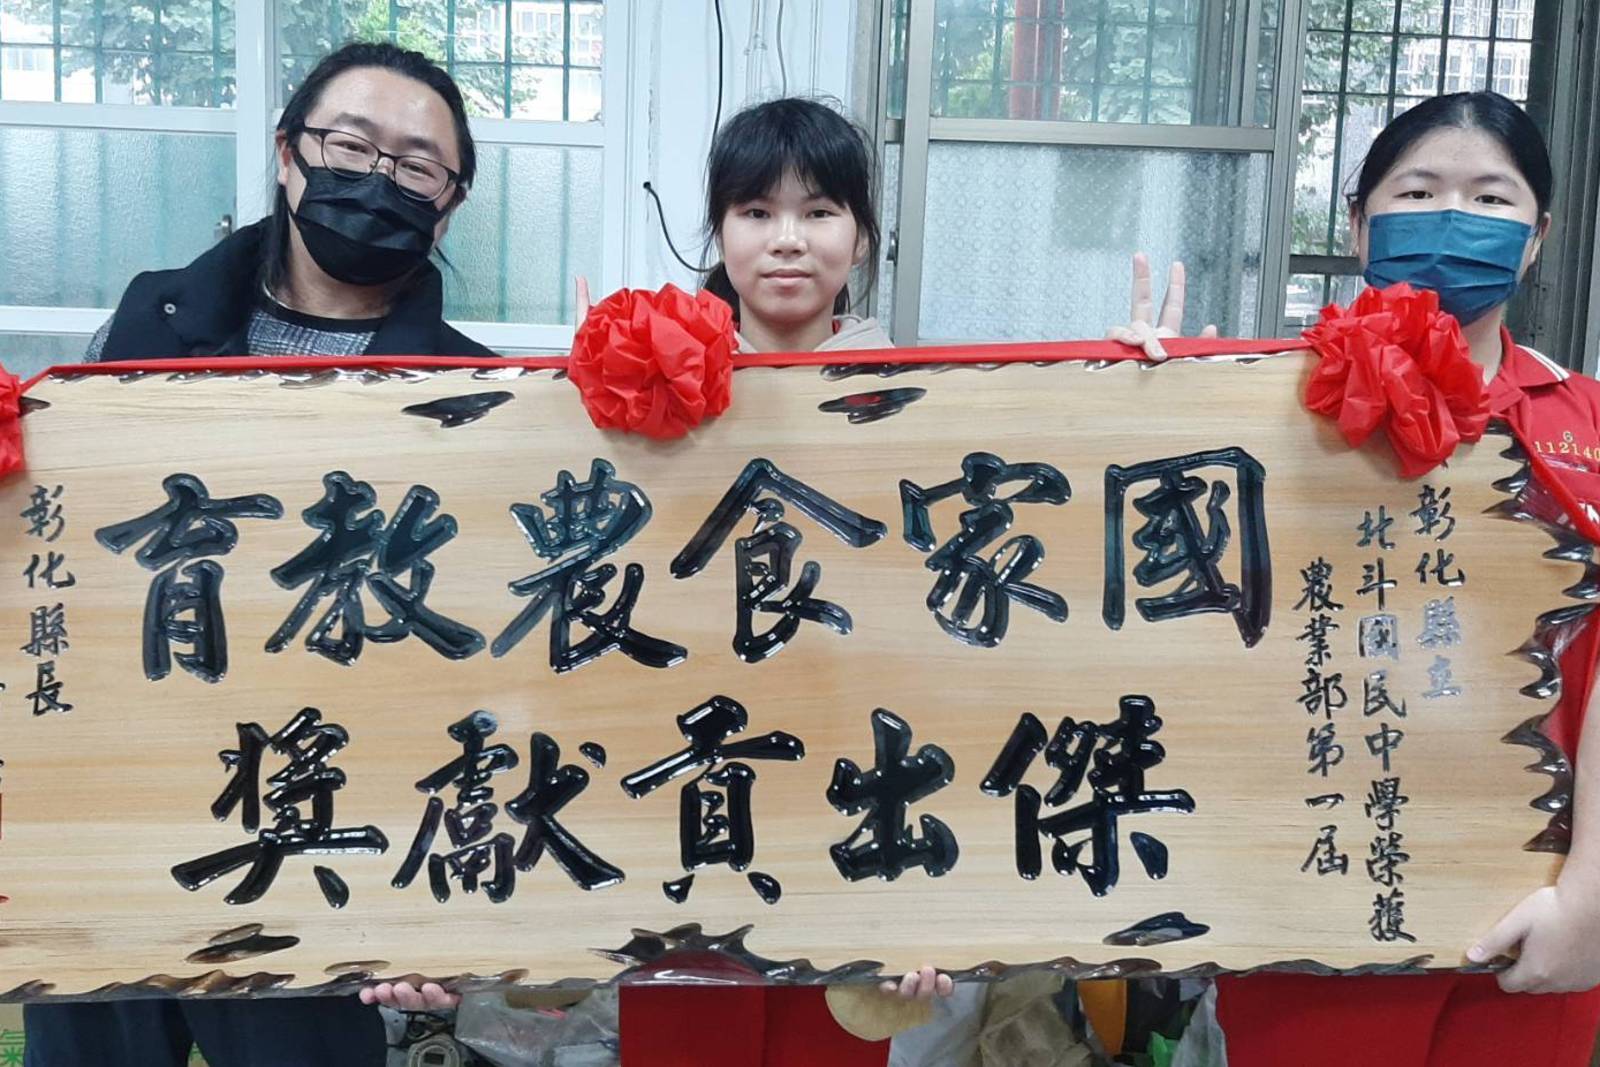 彰化縣立
北斗國民中學榮獲
農業部第一屆
國家食農教育
傑出貢獻獎
彰化縣長
6
112140
氣